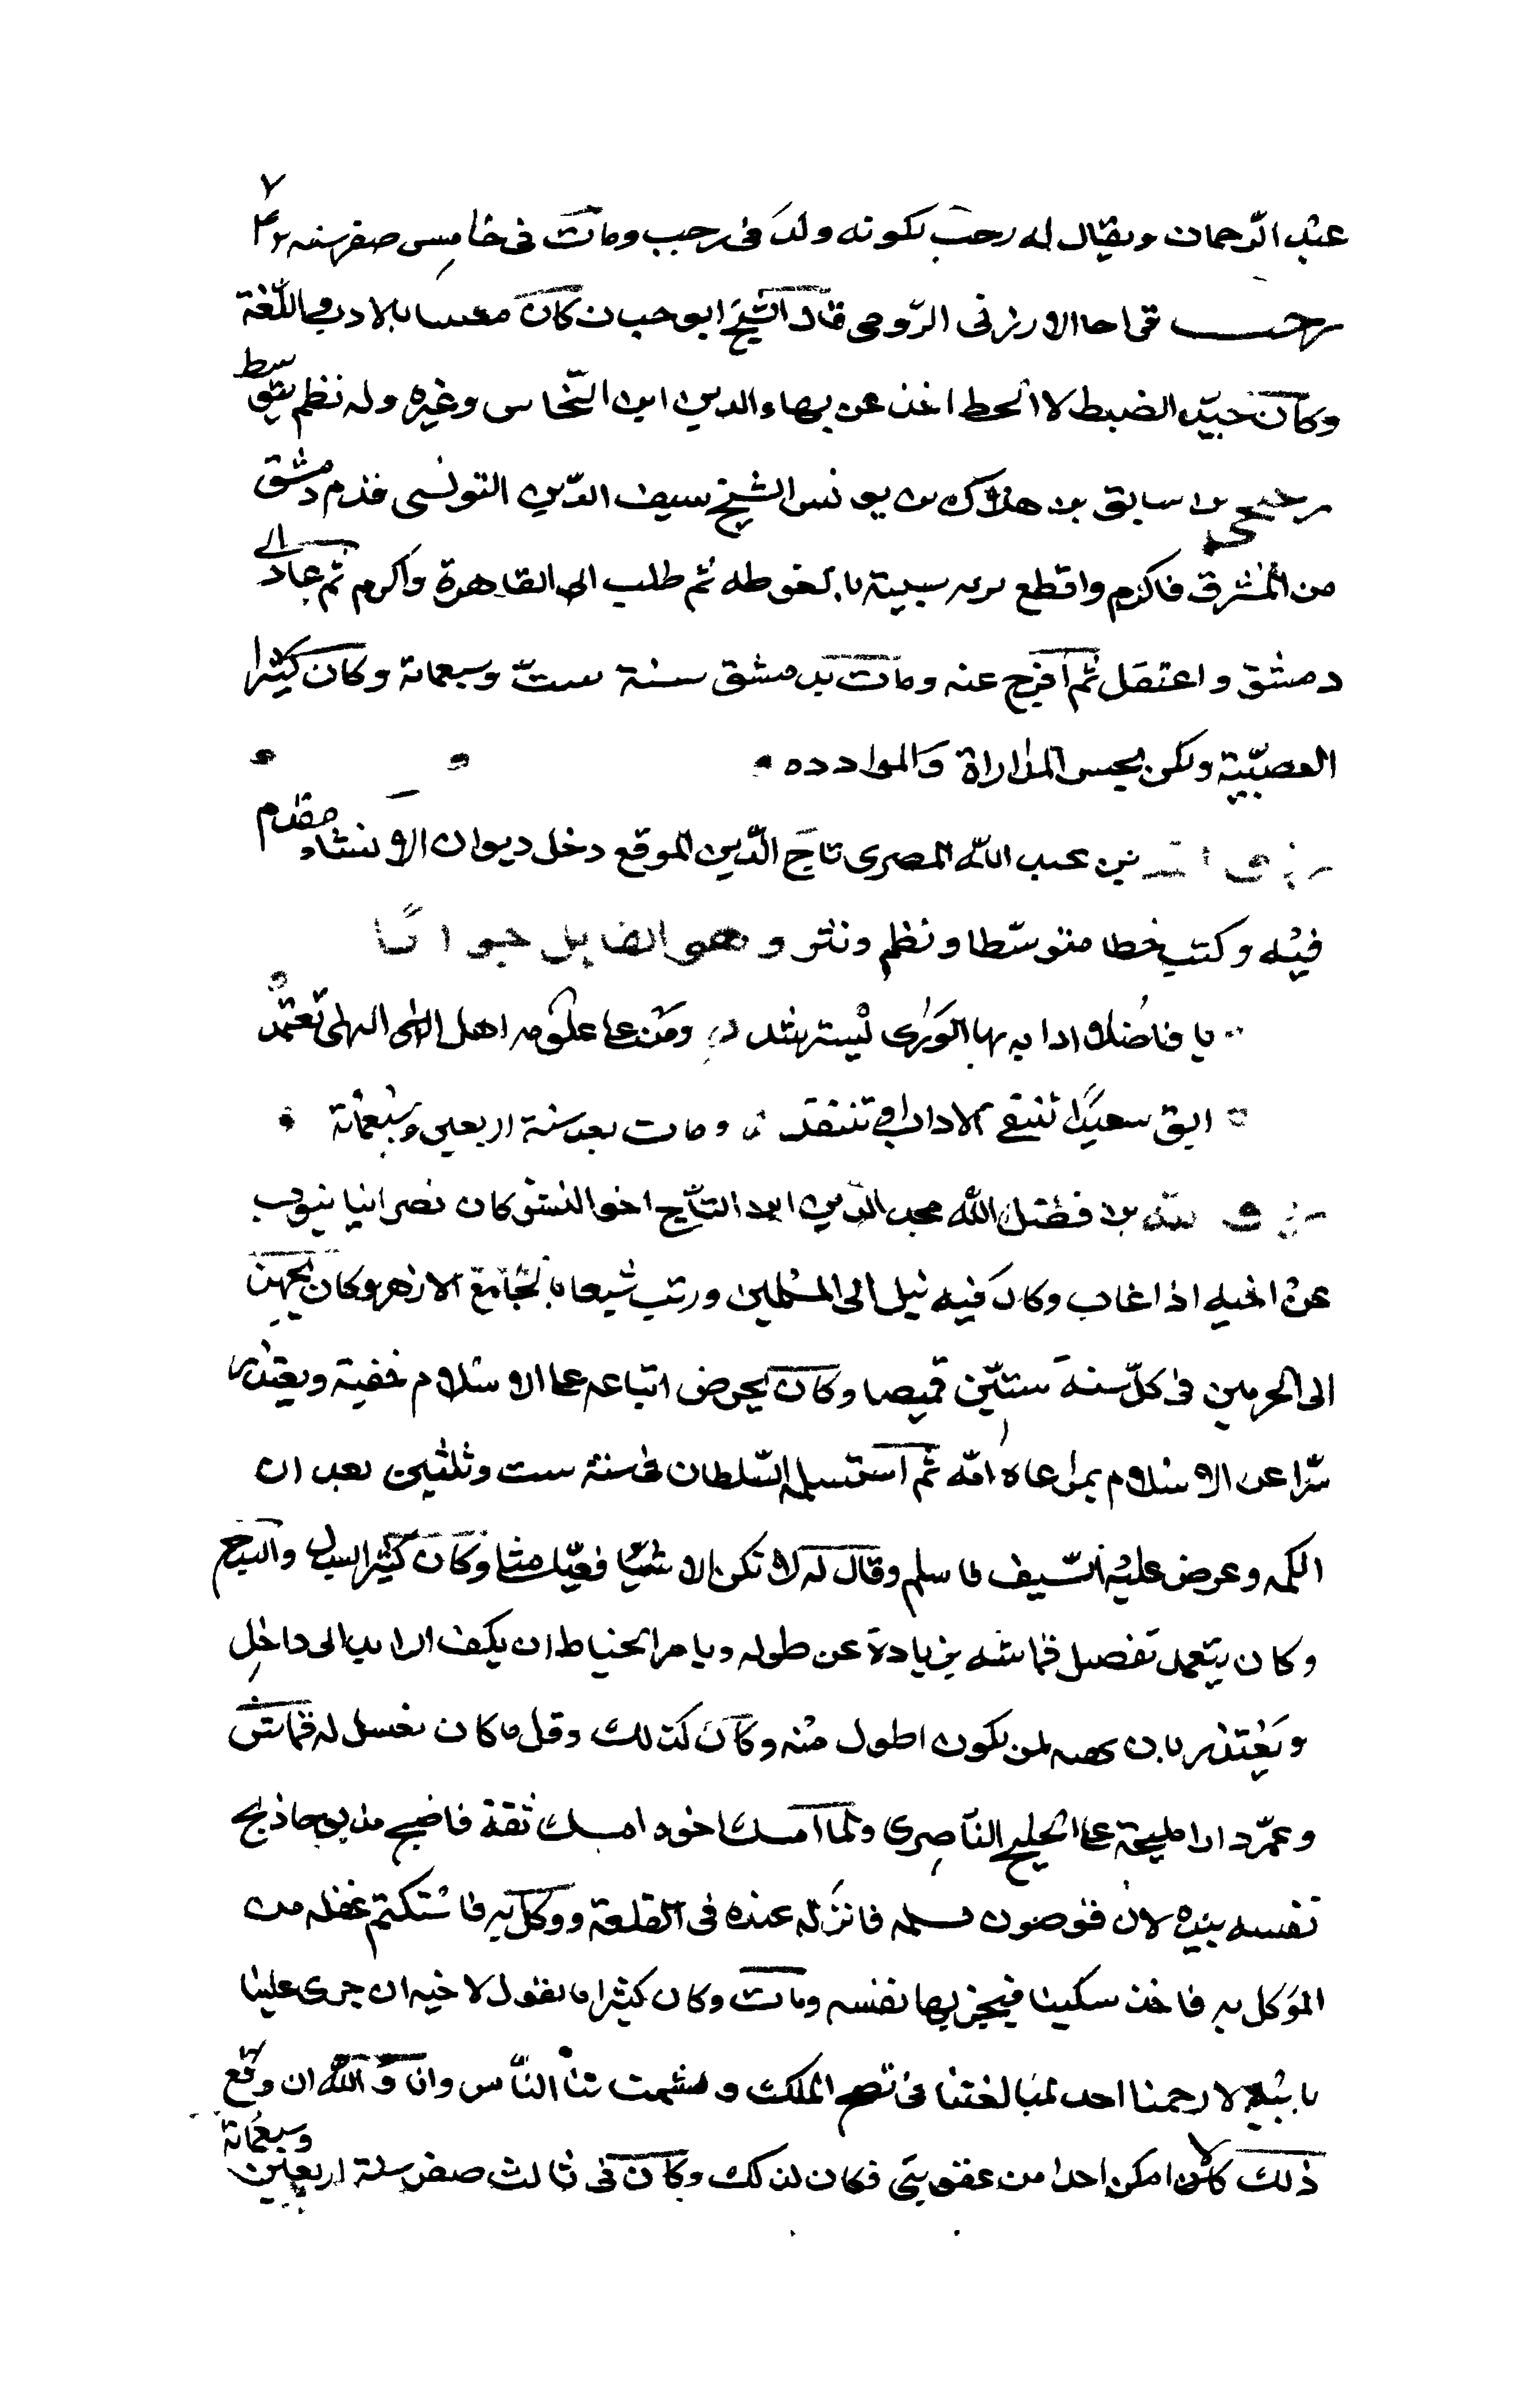 عبد الرحمان ويقال له رجب لكونه ولد فى رجب ومات فى خامس صفر سنه
رجب قراجا الارزنى الرّومى قال الشيخ ابو حيان كان معسا بالادب واللّغة
وكان جيّد الضبط لا الخط اخذ عن بهاء الدين ابن النّحاس وغيره وله نظم يتوسط
بن سابق بن هلاك بن يونس الشيخ سيف الدّين التونسى قدم دمشق
من المشرق فاكرم واقطع سبية بالغوطه ثم طلب الى القاهرة واكرم ثم عاد الى
دمشق واعتقل ثم افرج عنه ومات بدمشق سنة ستّ وسبعماىة وكان كثير
العصبّية ولكن يحسن المداراة والموادده
رزق الله بن عبد اللّه المصرى تاج الدّين الموقع دخل ديوان الانشاء مقدم
فيه وكتب خطا متوسّطا ونظم ونثر وهو القايل جوابًا
يا فاضلا ادابه بها الورى يسترشد ومن على علومه اهل النهى تعتمد
ابق سعيدًا تنتقى الاداب او تنتقد ومات بعد سنة اربعين وسبعماىة
رزق الله بن فضل الله مجد الدّين ابن التاج اخو النشو كان نصرانيا ينوب
عن اخيه اذا غاب وكان فيه ميل الى المسلمين ورتب شيعا بالجامع الازهر وكان يجهز
الى الحرمين فى كلّ سنة ستّين قميصا وكان يحرض اتباعه على الاسلام خفية ويعتذر
سّرا عن الاسلام بمراعاة امّه ثم استسلمه السّلطان فى سنة ست وثلثين بعد ان
الكمه وعرض عليه السّيف فاسلم وقال له لا تكن الا شافعيّا مثلنا وكان كثير البذل والسماح
وكان يتعمد تفصيل قماشه بزيادة عن طوله ويامر الخياط ان يكف الزايد الى داخل
ويعتذر بان يهبه لمن يكون اطول منه وكان كذلك وقل ما كان يغسل له قماش
وعمّر دارا مليحة على الخليج الناصرى ولما امسك اخوه امسك ثقة فاضبح مذبوحا ذبح
نفسه بيده لان قوصون تسلمه فانزله عنده فى القلعة ووكل به فاستكتم غفله من
الموكل به فاخذ سكينا فنحر بها نفسه ومات وكان كثيرا ما يقول لاخيه ان جرى علينا
لا رحمنا احد لمبالغتنا فى نصح الملك وشمت بنا النّاس وانا واللّه ان وقع
ذلك لا امكن احدا من عقوبتى فكان لذلك وكان فى ثالث صفر سنة اربعين وسبعماىة